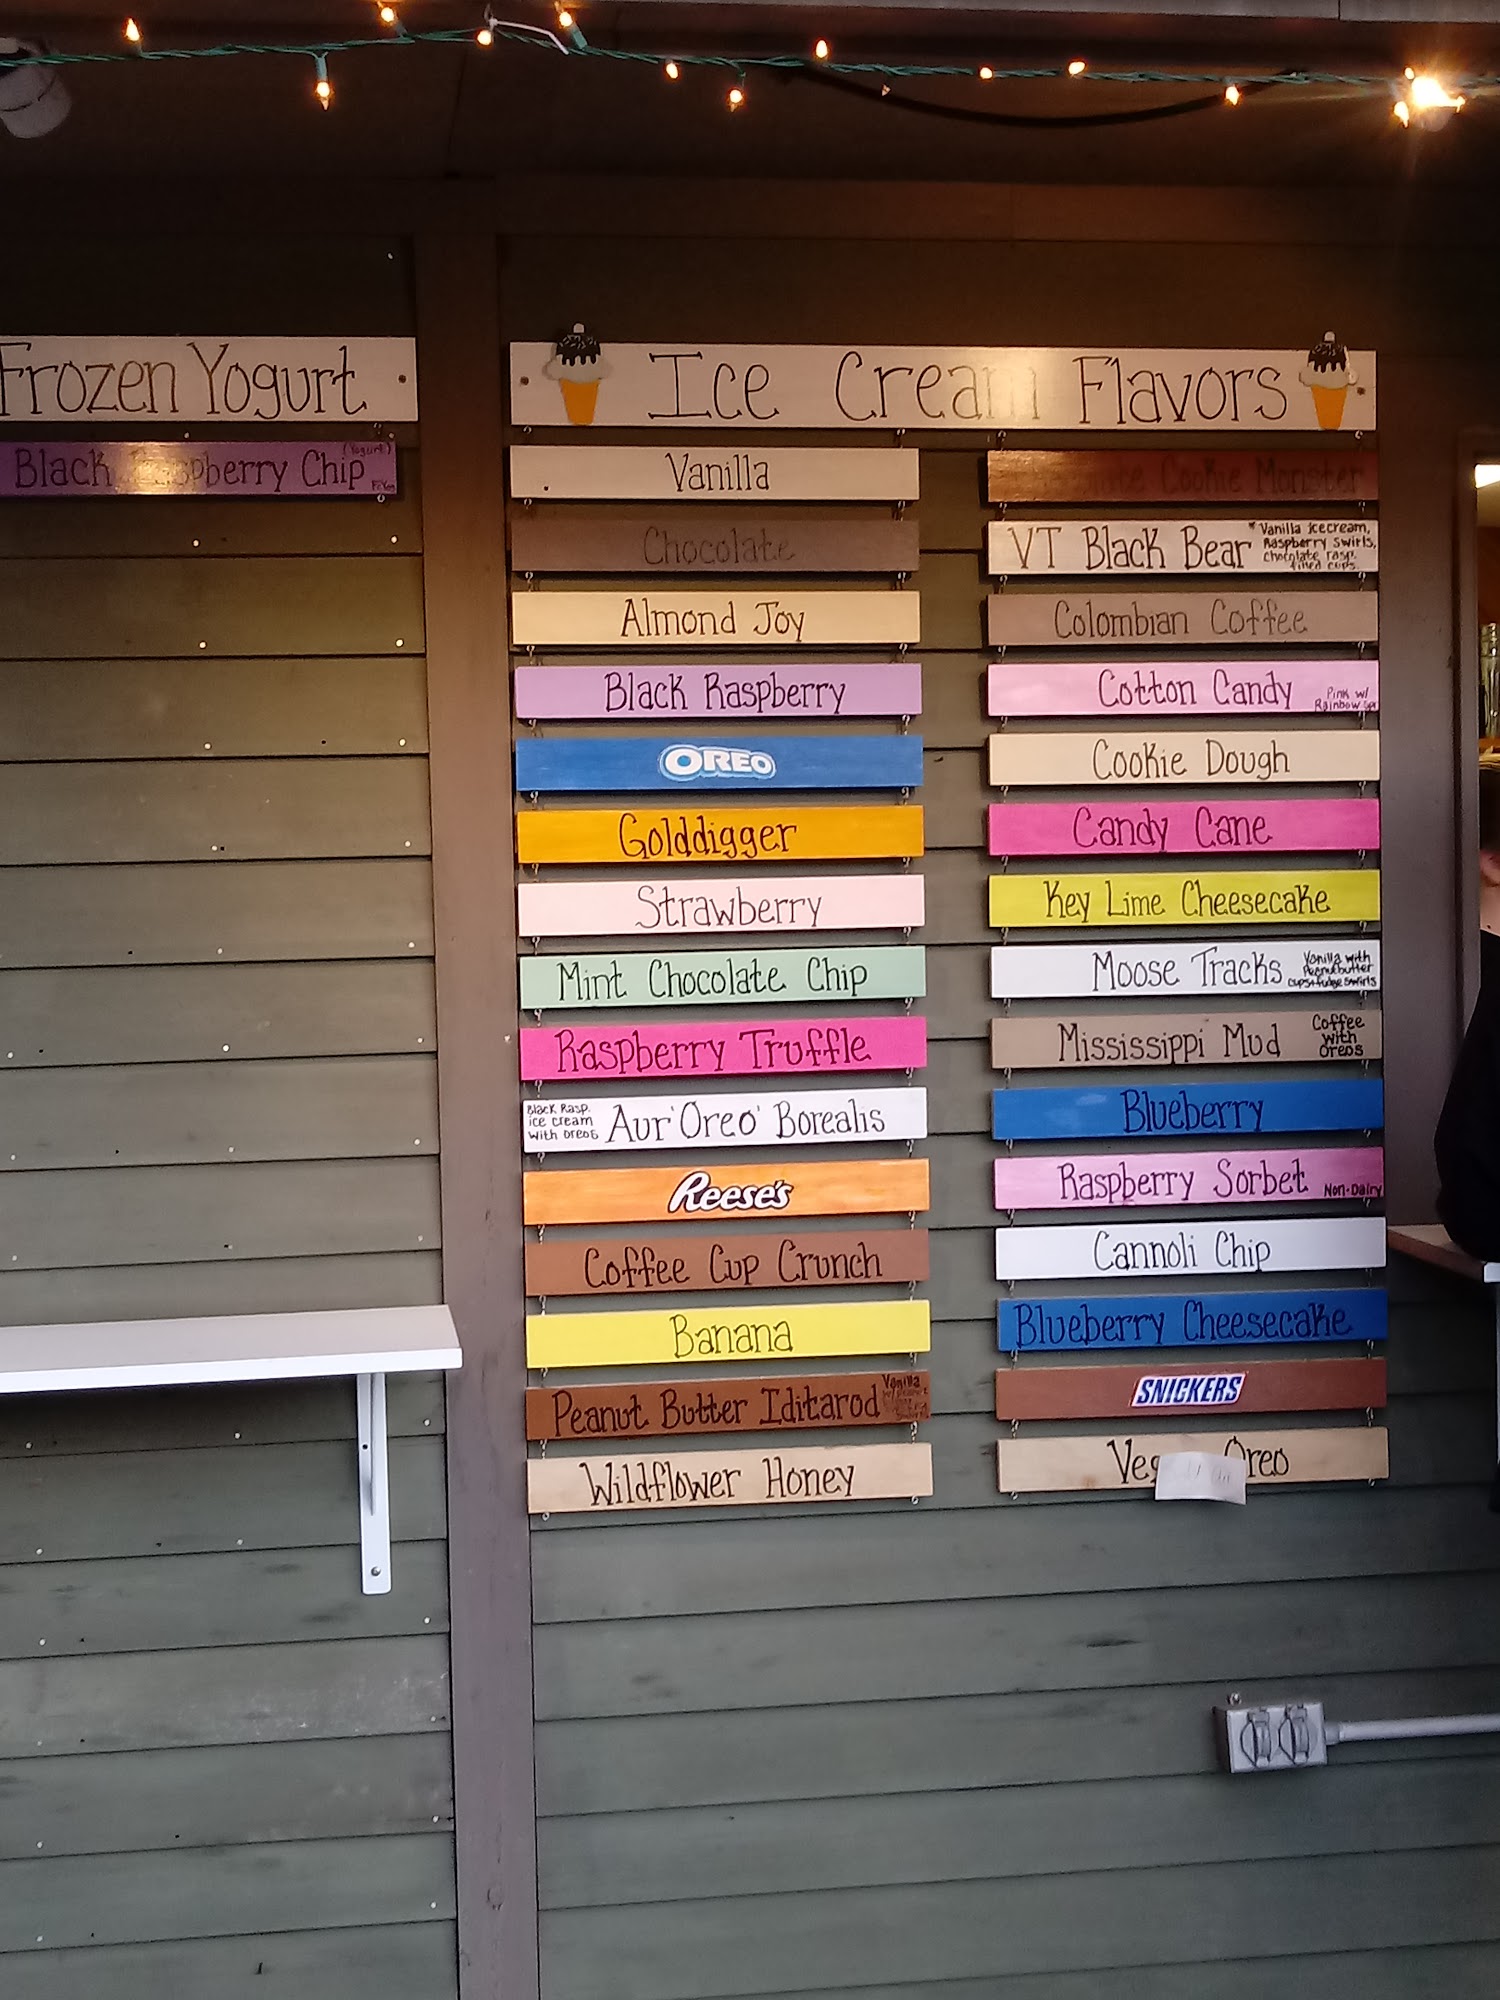 Frozen Yogurt
Black Raspberry Chip (Yogurt)
Ice Cream Flavors
Vanilla
Chocolate
Almond Joy
Black Raspberry
OREO
Golddigger
Strawberry
Mint Chocolate Chip
Raspberry Truffle
Black Rasp.
ice cream
with oreos
Aur'Oreo' Borealis
Reese's
Coffee Cup Crunch
Banana
Peanut Butter Iditarod
Vanilla
Wildflower Honey
Cookie Monster
VT Black Bear
*Vanilla icecream,
Raspberry swirls,
chocolate rasp.
filled cups.
Colombian Coffee
Cotton Candy
Pink w/
Rainbow
Cookie Dough
Candy Cane
Key Lime Cheesecake
Moose Tracks
Vanilla with
Peanutbutter
cups+fudge swirls
Mississippi Mud
Coffee
with
oreos
Blueberry
Raspberry Sorbet Non-Dairy
Cannoli Chip
Blueberry Cheesecake
SNICKERS
Oreo